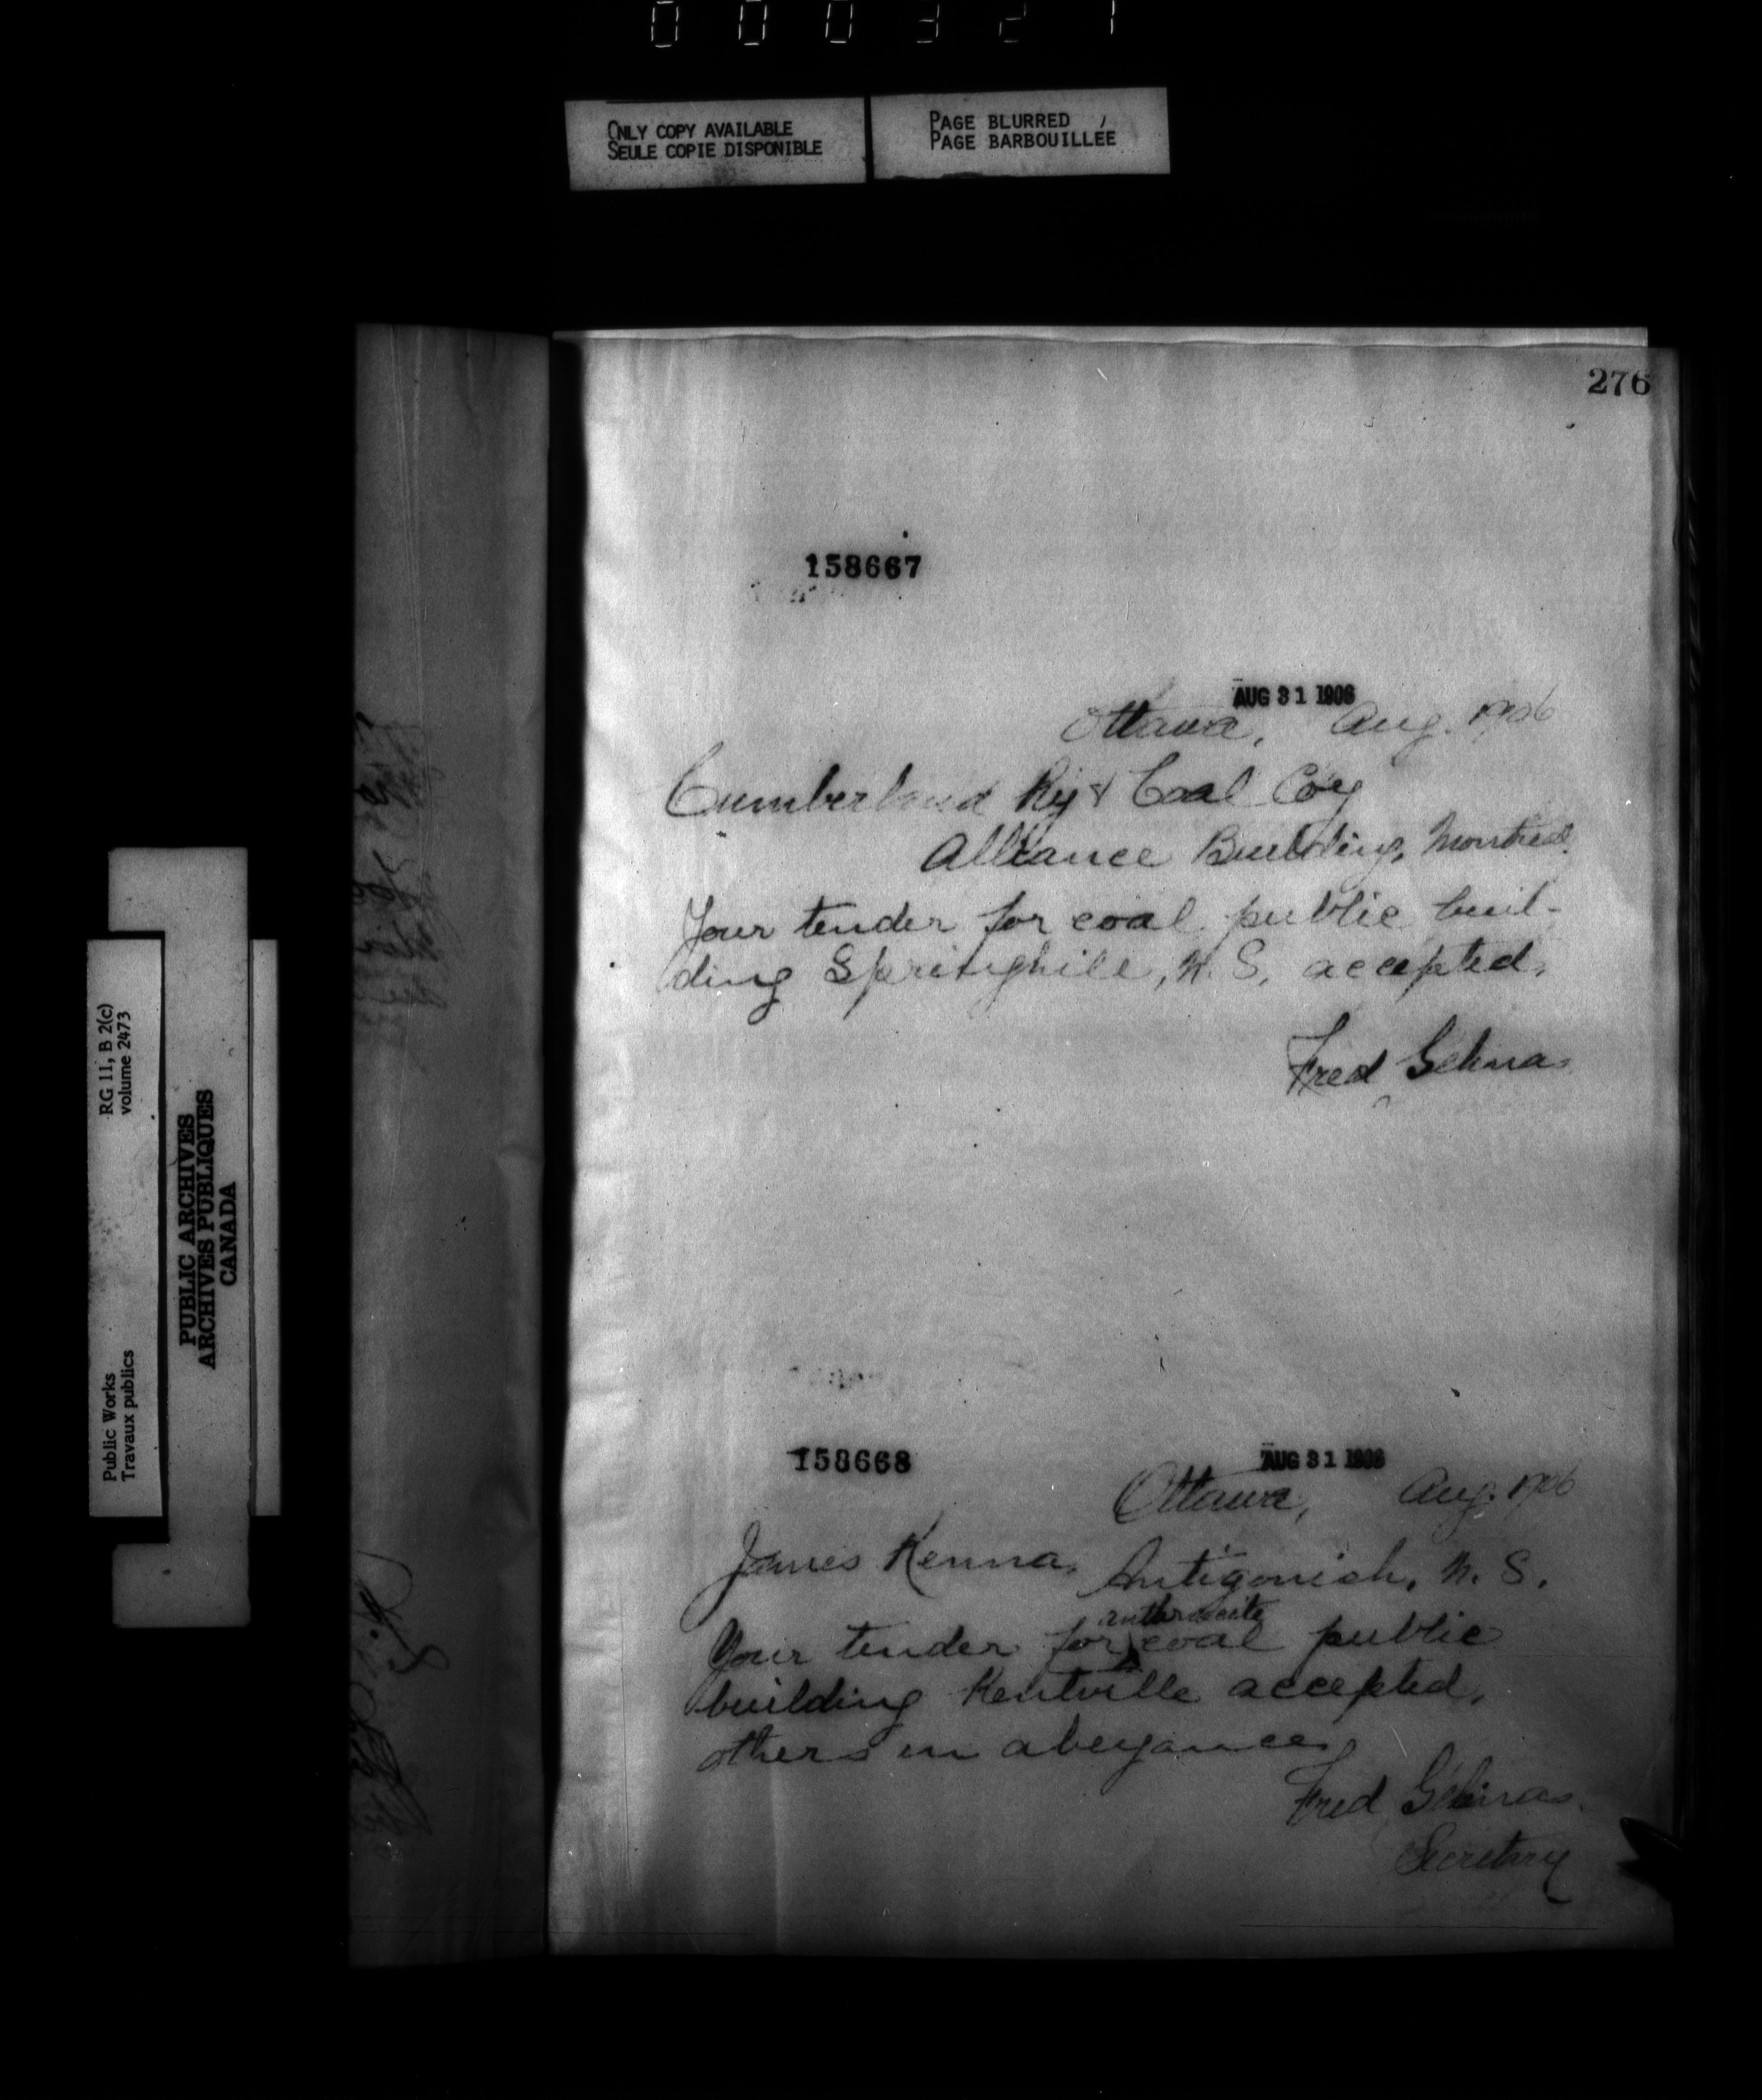 000321
ONLY COPY AVAILABLE
SEULE COPIE DISPONIBLE
PAGE BLURRED
PAGE BARBOUILLEE
276
158667
AUG 31 1906
Ottawa, Aug. 1906
Cumberland Ry & Coal Coy
Alliance Building, Montreal.
Your tender for coal public buil-
ding Springhill, N. S. accepted.
Fred Gelinas
158668
AUG 31 1906
Ottawa, Aug. 1906
James Kenna, Antigonish, N. S.
anthracite
Your tender for coal public
building Kentville accepted,
others in abeyance.
Fred Gélinas
Secretary
RG 11, B 2(c)
volume 2473
Public Works
Travaux publics
PUBLIC ARCHIVES
ARCHIVES PUBLIQUES
CANADA